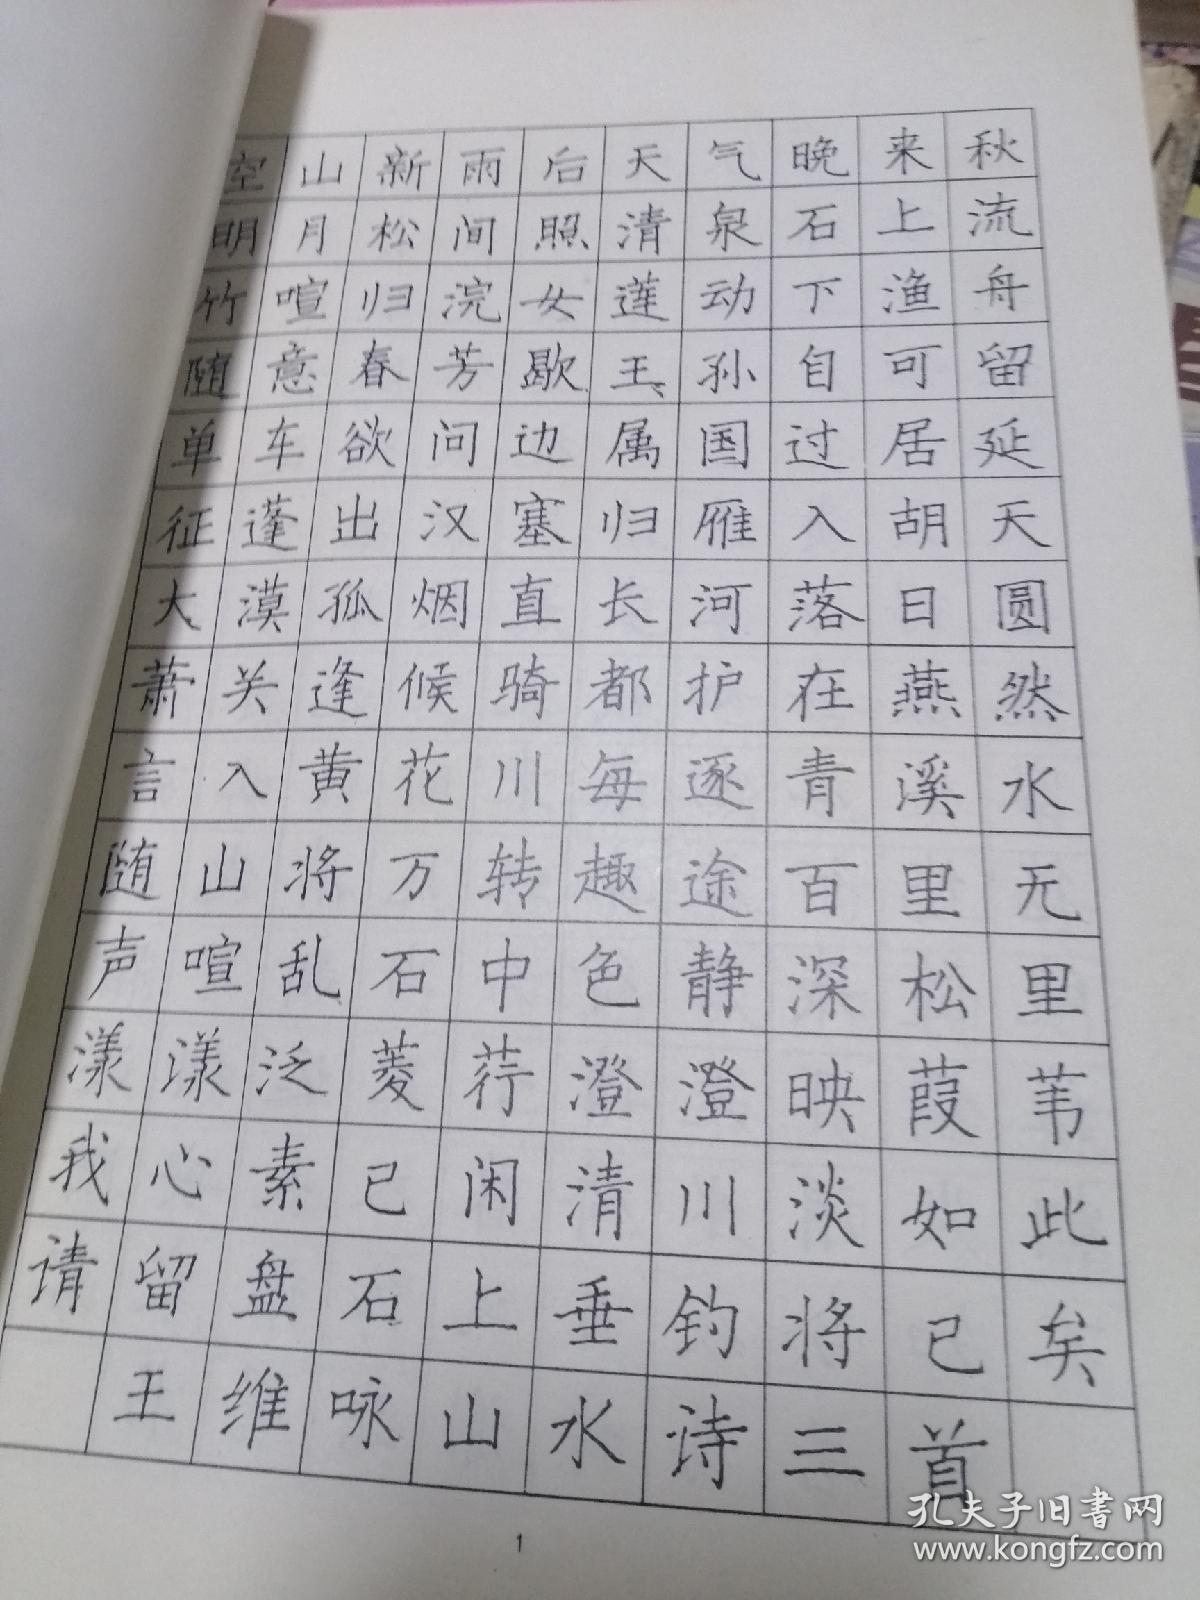 空山新雨后天气晚来秋
明月松间照清泉石上流
竹喧归浣女莲动下渔舟
随意春芳歇王孙自可留
单车欲问边属国过居延
征蓬出汉塞归雁入胡天
大漠孤烟直长河落日圆
萧关逢候骑都护在燕然
言入黄花川每逐青溪水
随山将万转趣途百里无
声喧乱石中色静深松里
漾漾泛菱荇澄澄映葭苇
我心素已闲清川淡如此
请留盘石上垂钓将已矣
王维咏山水诗三首
1
孔夫子旧书网
www.kongfz.com